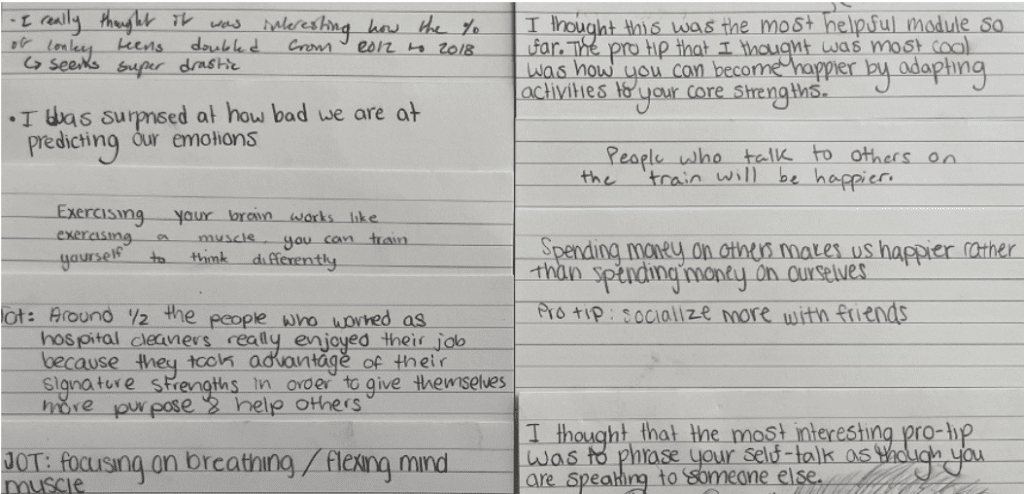 - I really thought it was interesting how the %
of lonley teens doubled from 2012 to 2018
↳ seems super drastic
• I was surprised at how bad we are at
predicting our emotions
Exercising your brain works like
exercising a muscle, you can train
yourself to think differently
JOT: Around 1/2 the people who worked as
hospital cleaners really enjoyed their job
because they took advantage of their
signature strengths in order to give themselves
more purpose & help others
JOT: focusing on breathing / flexing mind
muscle
I thought this was the most helpful module so
far. The pro tip that I thought was most cool
was how you can become happier by adapting
activities to your core strengths.
People who talk to others on
the train will be happier.
Spending money on others makes us happier rather
than spending money on ourselves
Pro tip: socialize more with friends
I thought that the most interesting pro-tip
was to phrase your self-talk as though you
are speaking to someone else.